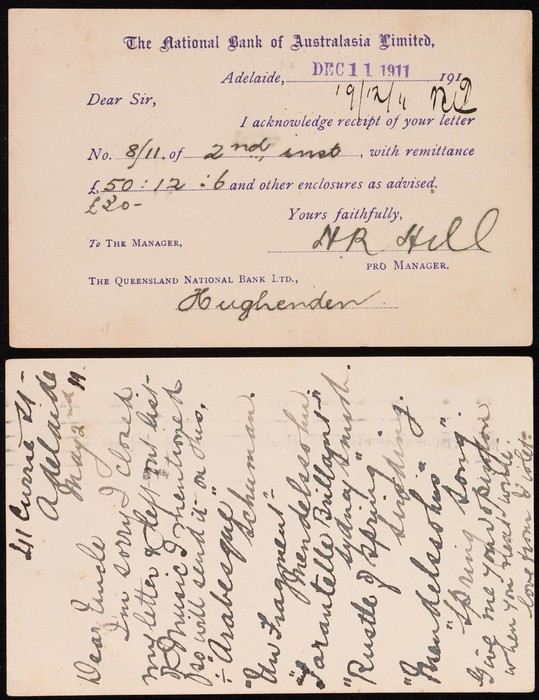 The National Bank of Australasia Limited,
Adelaide, DEC 11 1911 191
19/12/11
Dear Sir,
I acknowledge receipt of your letter
No. 8/11. of 2nd, inst, with remittance
£ 50:12:6 and other enclosures as advised.
£20-
Yours faithfully,
HR Hill
PRO MANAGER.
To THE MANAGER,
THE QUEENSLAND NATIONAL BANK LTD.,
Hughenden
41 Currie St-
Adelaide
May 2nd 11.
Dear Uncle
I'm sorry I closed
my letter & left out list-
of music I mentioned
so will send it on this,
"Arabesque"
Schuman.
"Un Fragment"
Mendelssohn
"Tarantelle Brillant"
Sydney Smith.
"Rustle of Spring"
Sinding.
"Mendelssohns"
"Spring Song".
Give me your opinion
when you next write.
love from